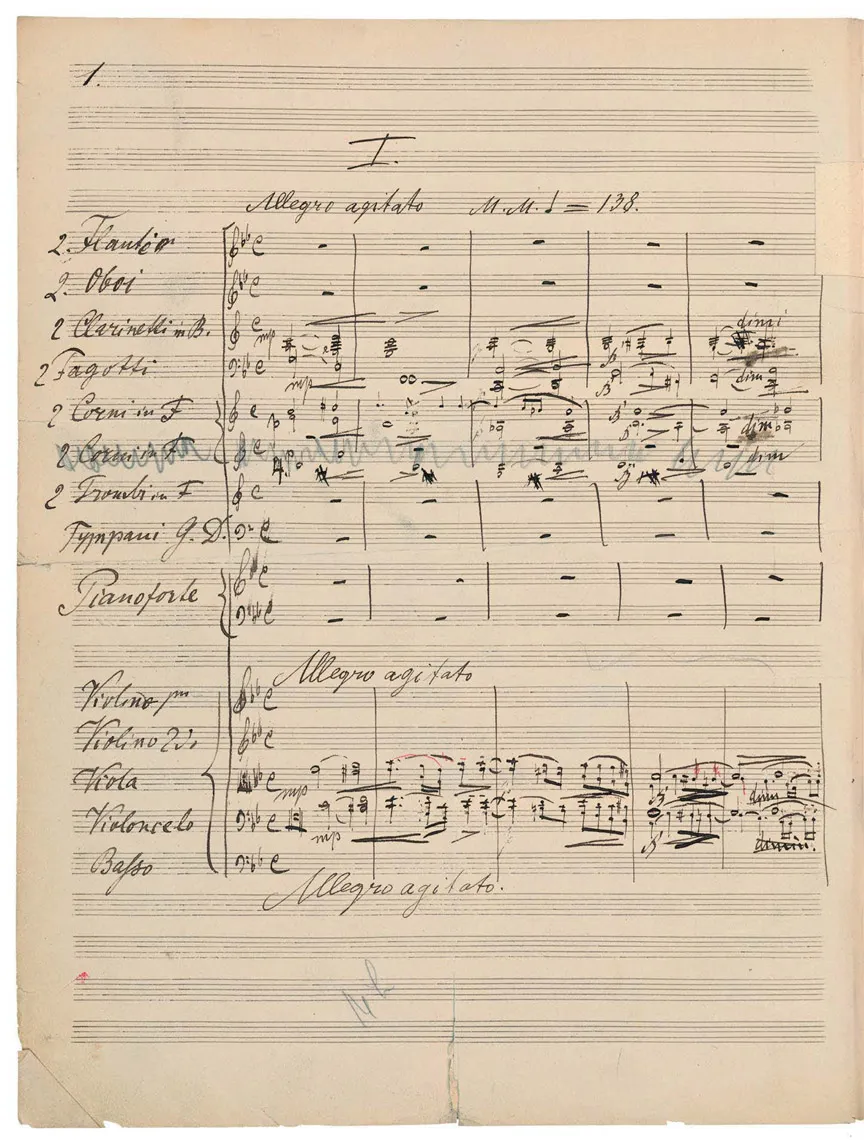 1.
I.
Allegro agitato M.M. ♩ = 138.
2. Flauti
2. Oboi
2 Clarinetti in B. mp dimi
2 Fagotti mp dim
2 Corni in F p dim
2 Corni in F p dim
2 Trombi in F
Tympani G. D.
Pianoforte
Allegro agitato
Violino pm
Violino 2do
Viola mp dim
Violoncelo mp dimin.
Basso
Allegro agitato.